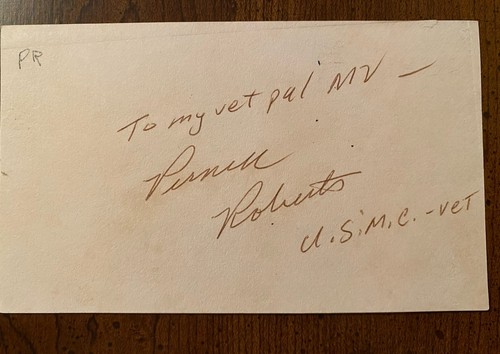 PR
To my vet pal MV —
Pernell
Roberts
U.S.M.C. - vet